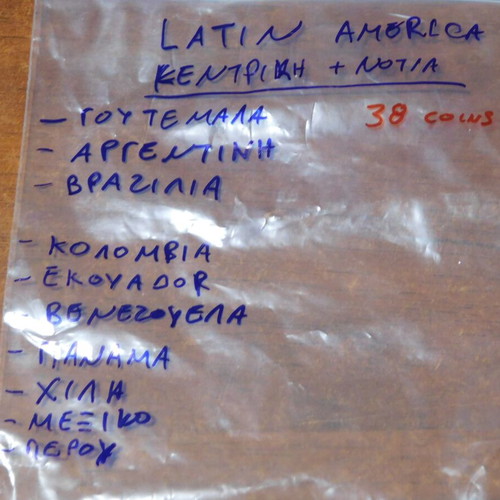 LATIN AMERICA
ΚΕΝΤΡΙΚΗ + ΝΟΤΙΑ
- ΓΟΥΤΕΜΑΛΑ 38 COINS
- ΑΡΓΕΝΤΙΝΗ
- ΒΡΑΖΙΛΙΑ
- ΚΟΛΟΜΒΙΑ
- ΕΚΟΥΑDOR
- ΒΕΝΕΖΟΥΕΛΑ
- ΠΑΝΑΜΑ
- ΧΙΛΗ
- ΜΕΞΙΚΟ
- ΠΕΡΟΥ